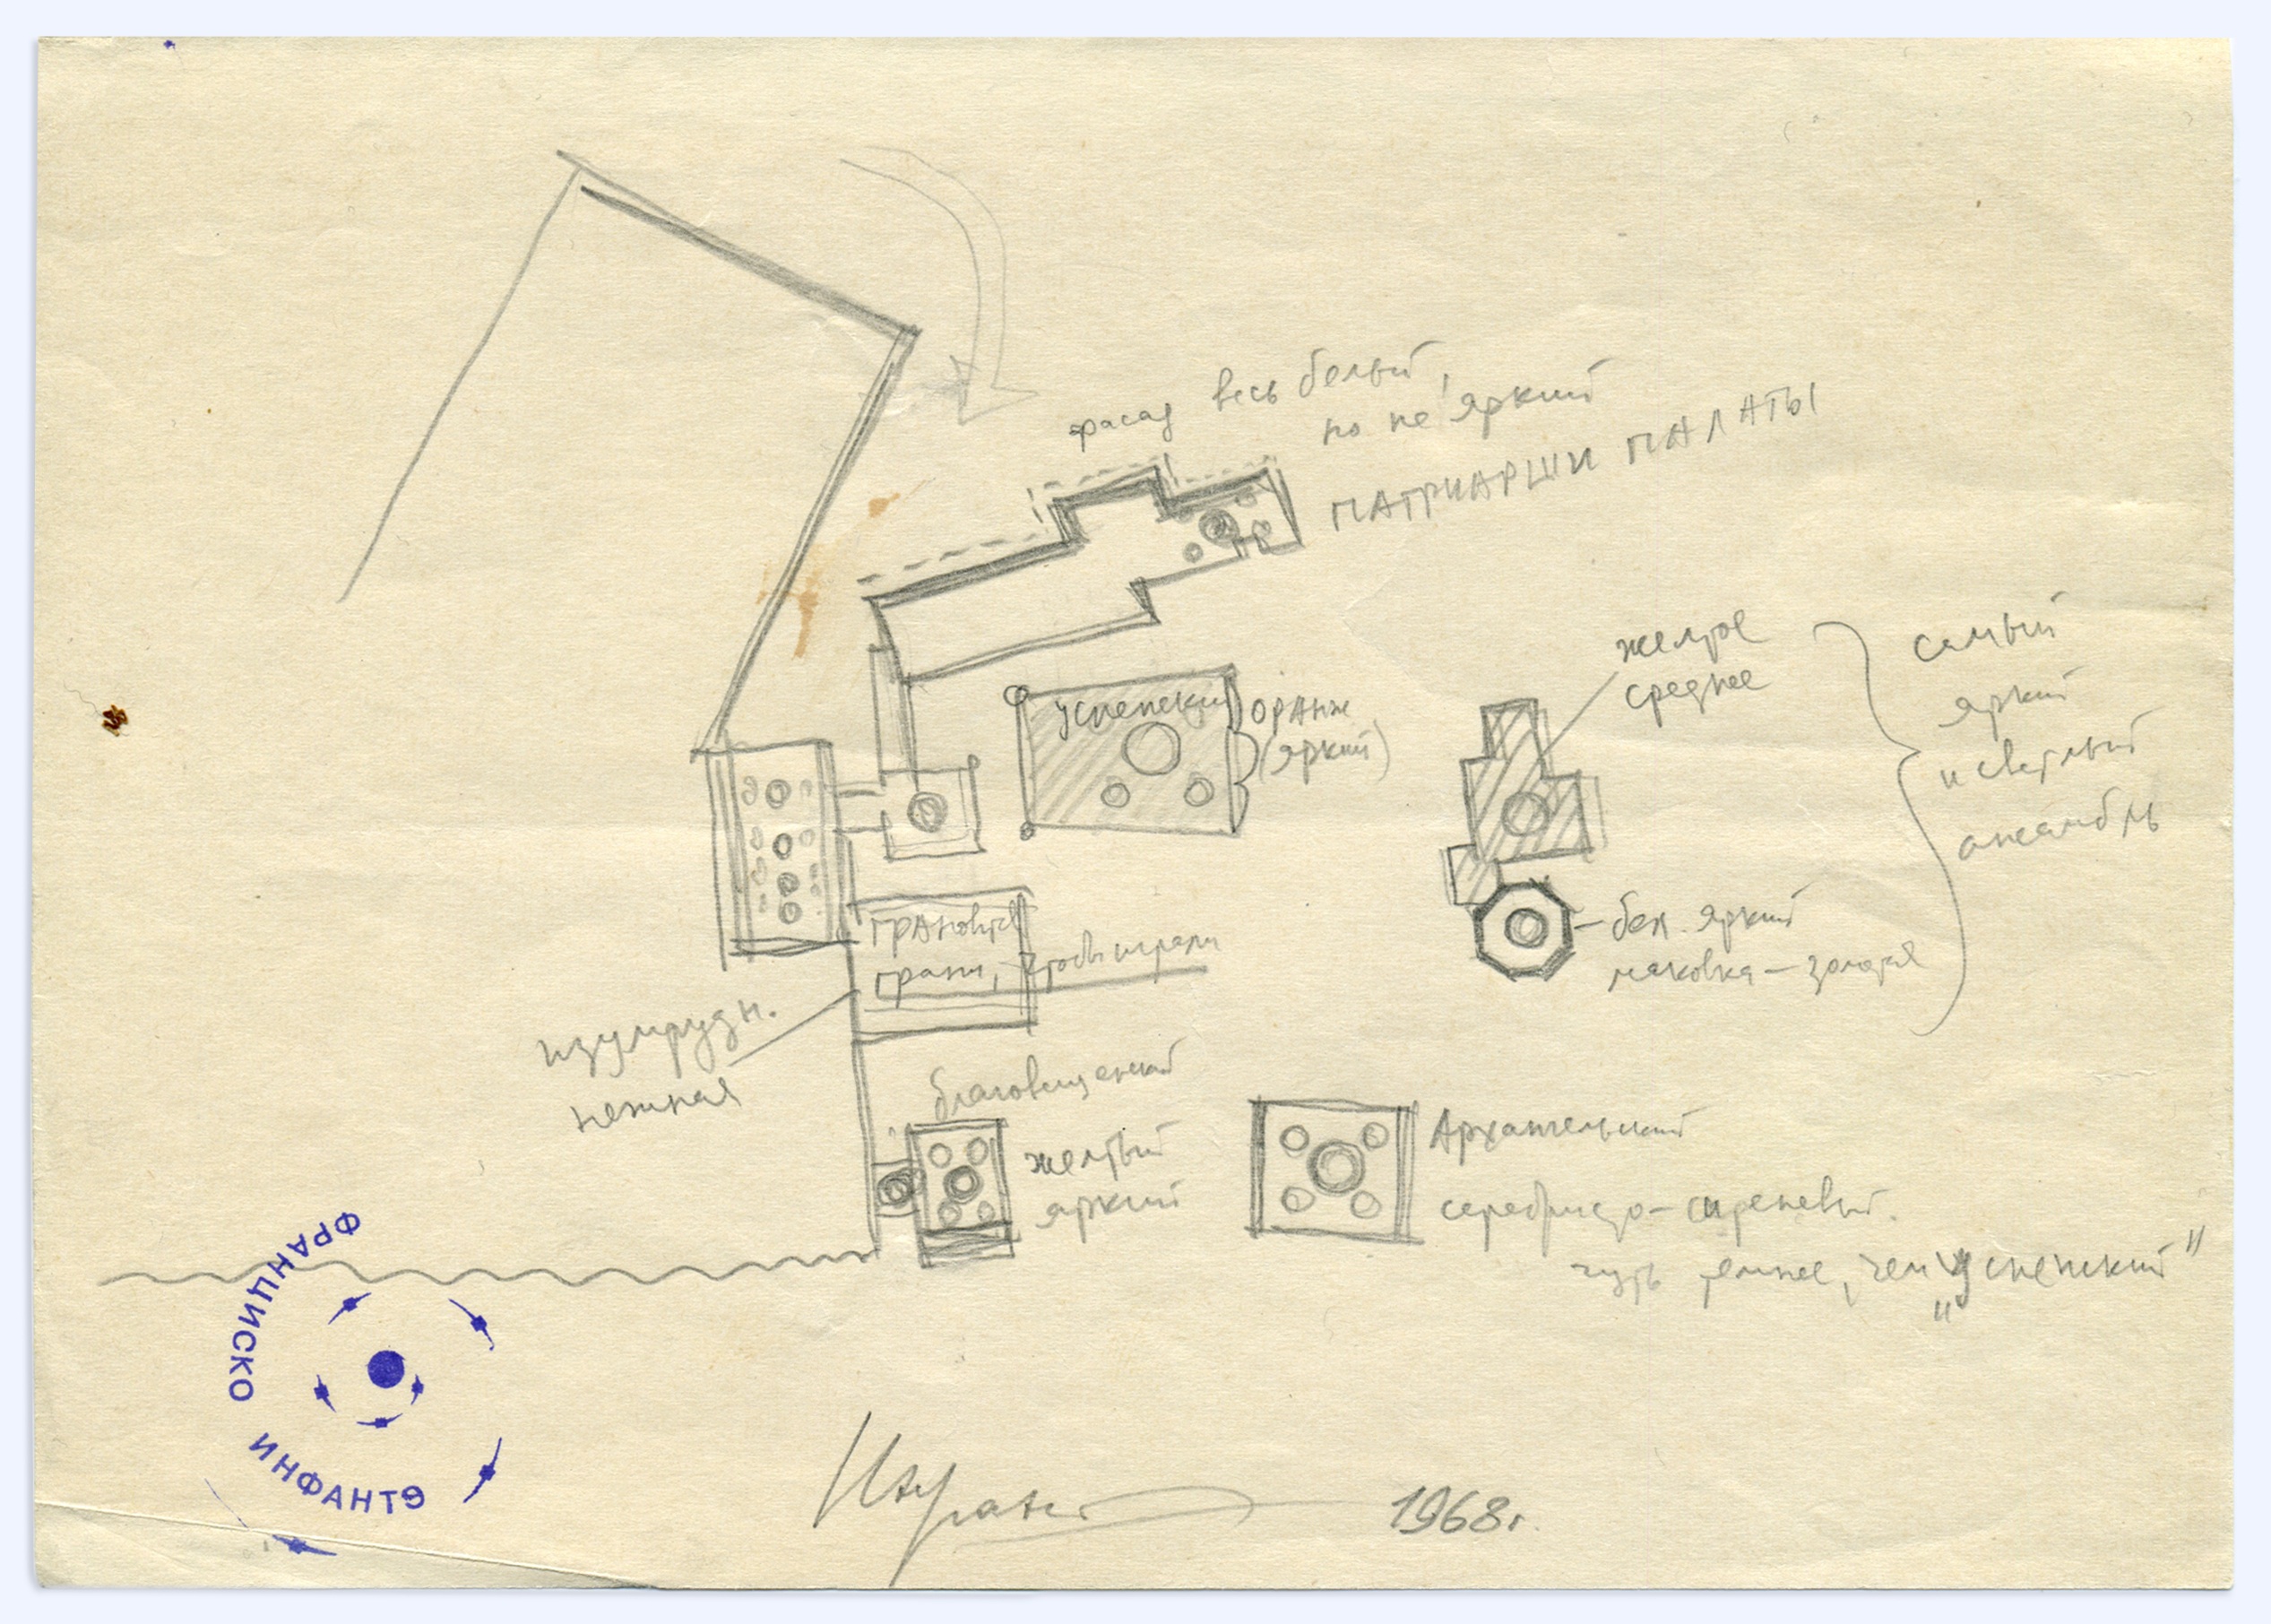 фасад весь белый,
но не яркий
ПАТРИАРШИ ПАЛАТЫ
желтое
среднее
самый
яркий
и светлый
ансамбль
успенский
оранж
(яркий)
бел. яркий
маковка – золотая
грановитая
грани, чтобы играли
изумрудн.
нежная
благовещенский
желтый
яркий
Архангельский
серебристо-сиреневый.
чуть темнее, чем „Успенский"
ФРАНЦИСКО ИНФАНТЭ
Инфантэ 1968г.